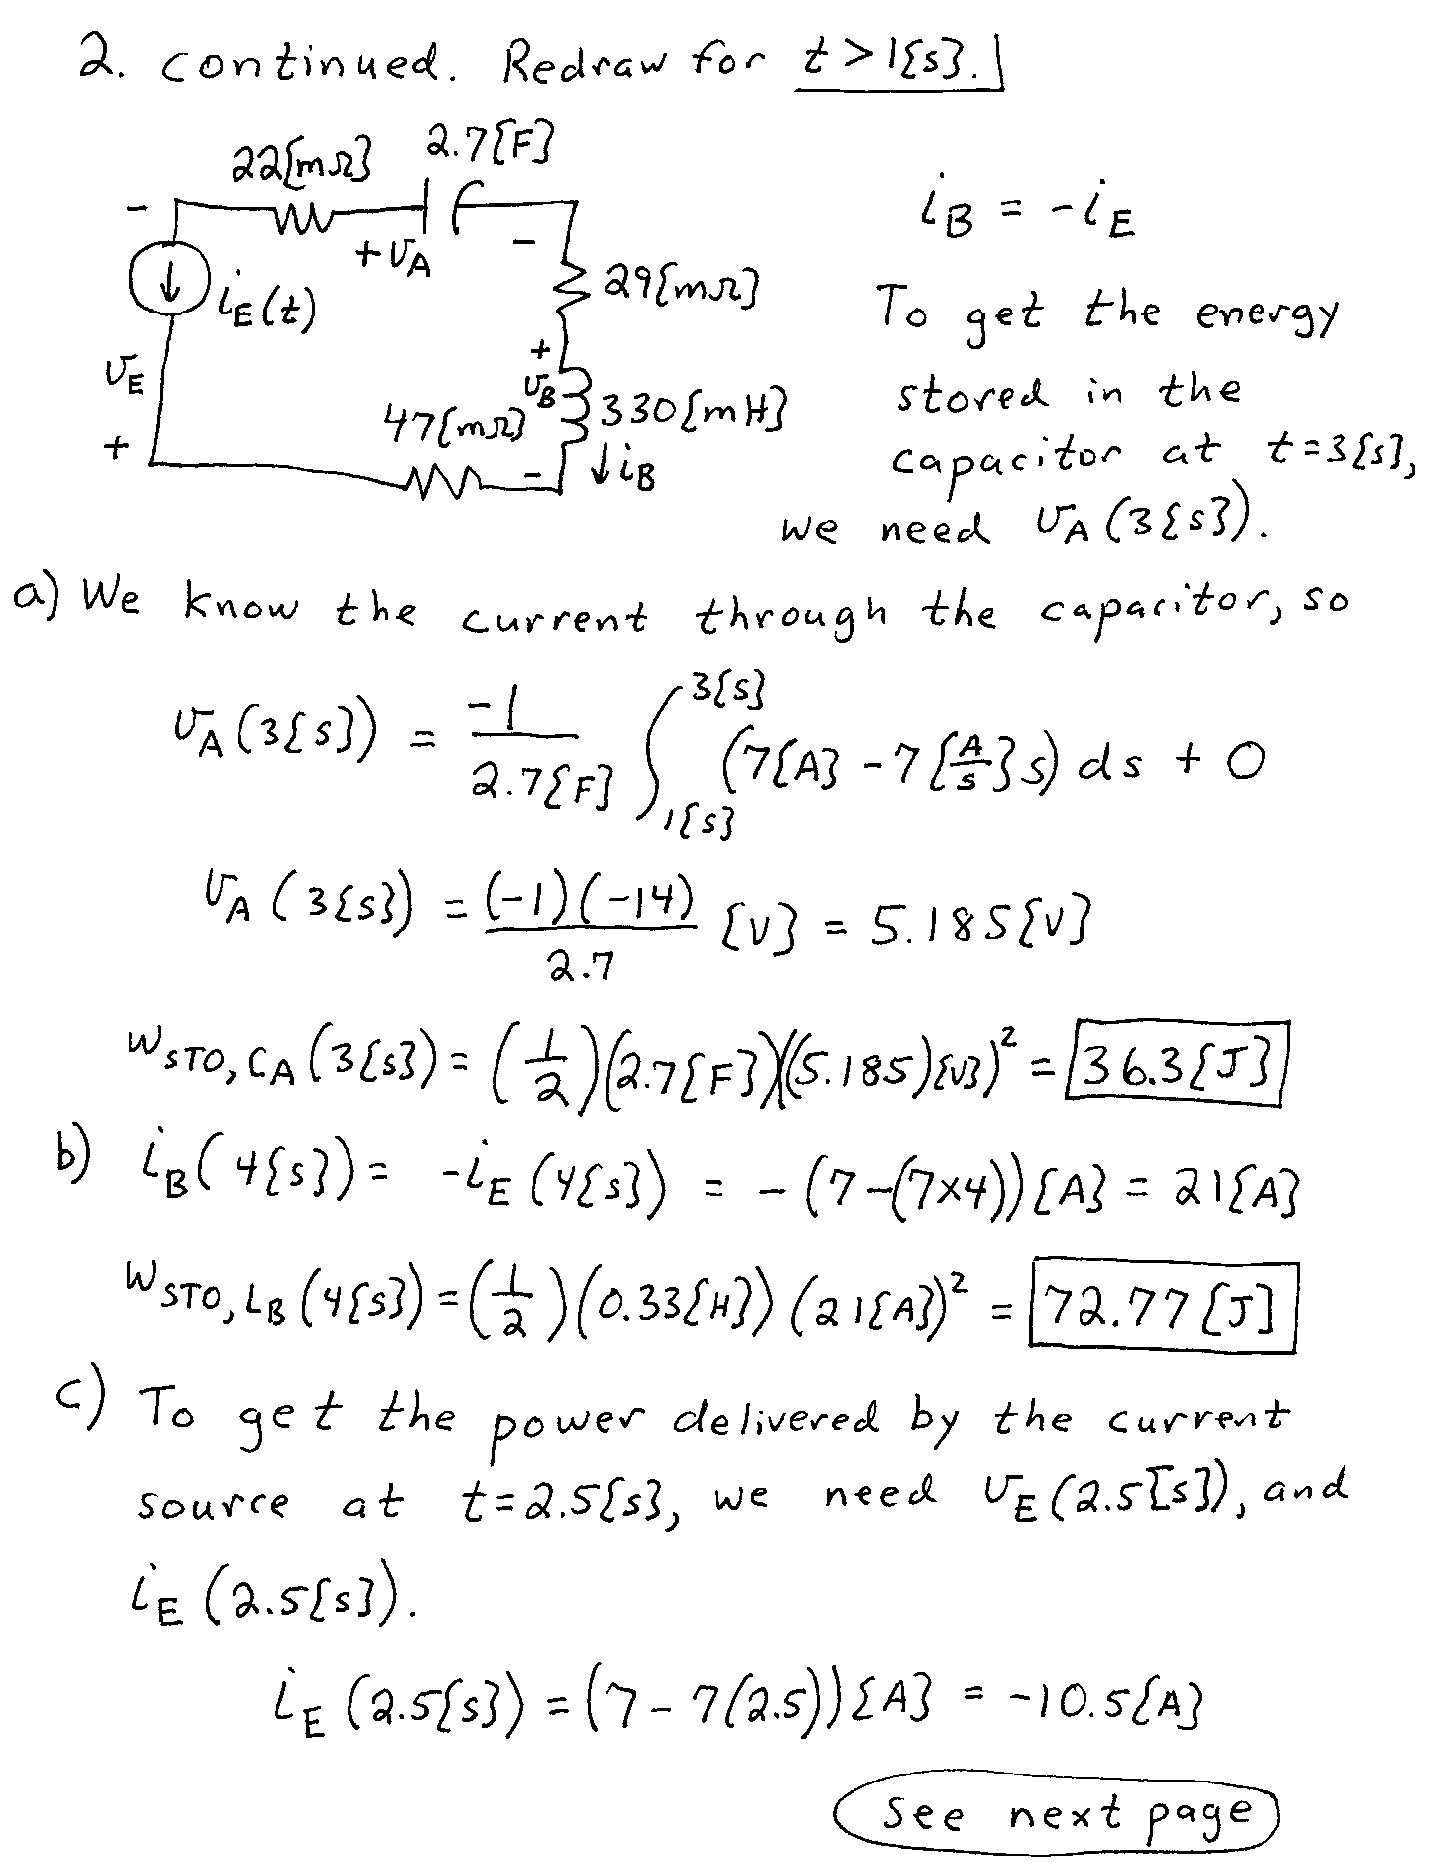 2. continued. Redraw for t > 1{s}.
22{mΩ} 2.7{F}
- + vA -
iB = -iE
iE(t)
29{mΩ}
To get the energy
vE
+
+ vB -
330{mH}
stored in the
47{mΩ}
iB
capacitor at t=3{s},
we need vA(3{s}).
a) We know the current through the capacitor, so
vA(3{s}) = -1/2.7{F} ∫_1{s}^3{s} (7{A} - 7{A/s}s) ds + 0
vA(3{s}) = (-1)(-14)/2.7 {V} = 5.185{V}
wSTO,CA(3{s}) = (1/2)(2.7{F})((5.185){V})² = 36.3{J}
b) iB(4{s}) = -iE(4{s}) = -(7-(7×4)){A} = 21{A}
wSTO,LB(4{s}) = (1/2)(0.33{H})(21{A})² = 72.77{J}
c) To get the power delivered by the current
source at t=2.5{s}, we need vE(2.5{s}), and
iE(2.5{s}).
iE(2.5{s}) = (7-7(2.5)){A} = -10.5{A}
See next page